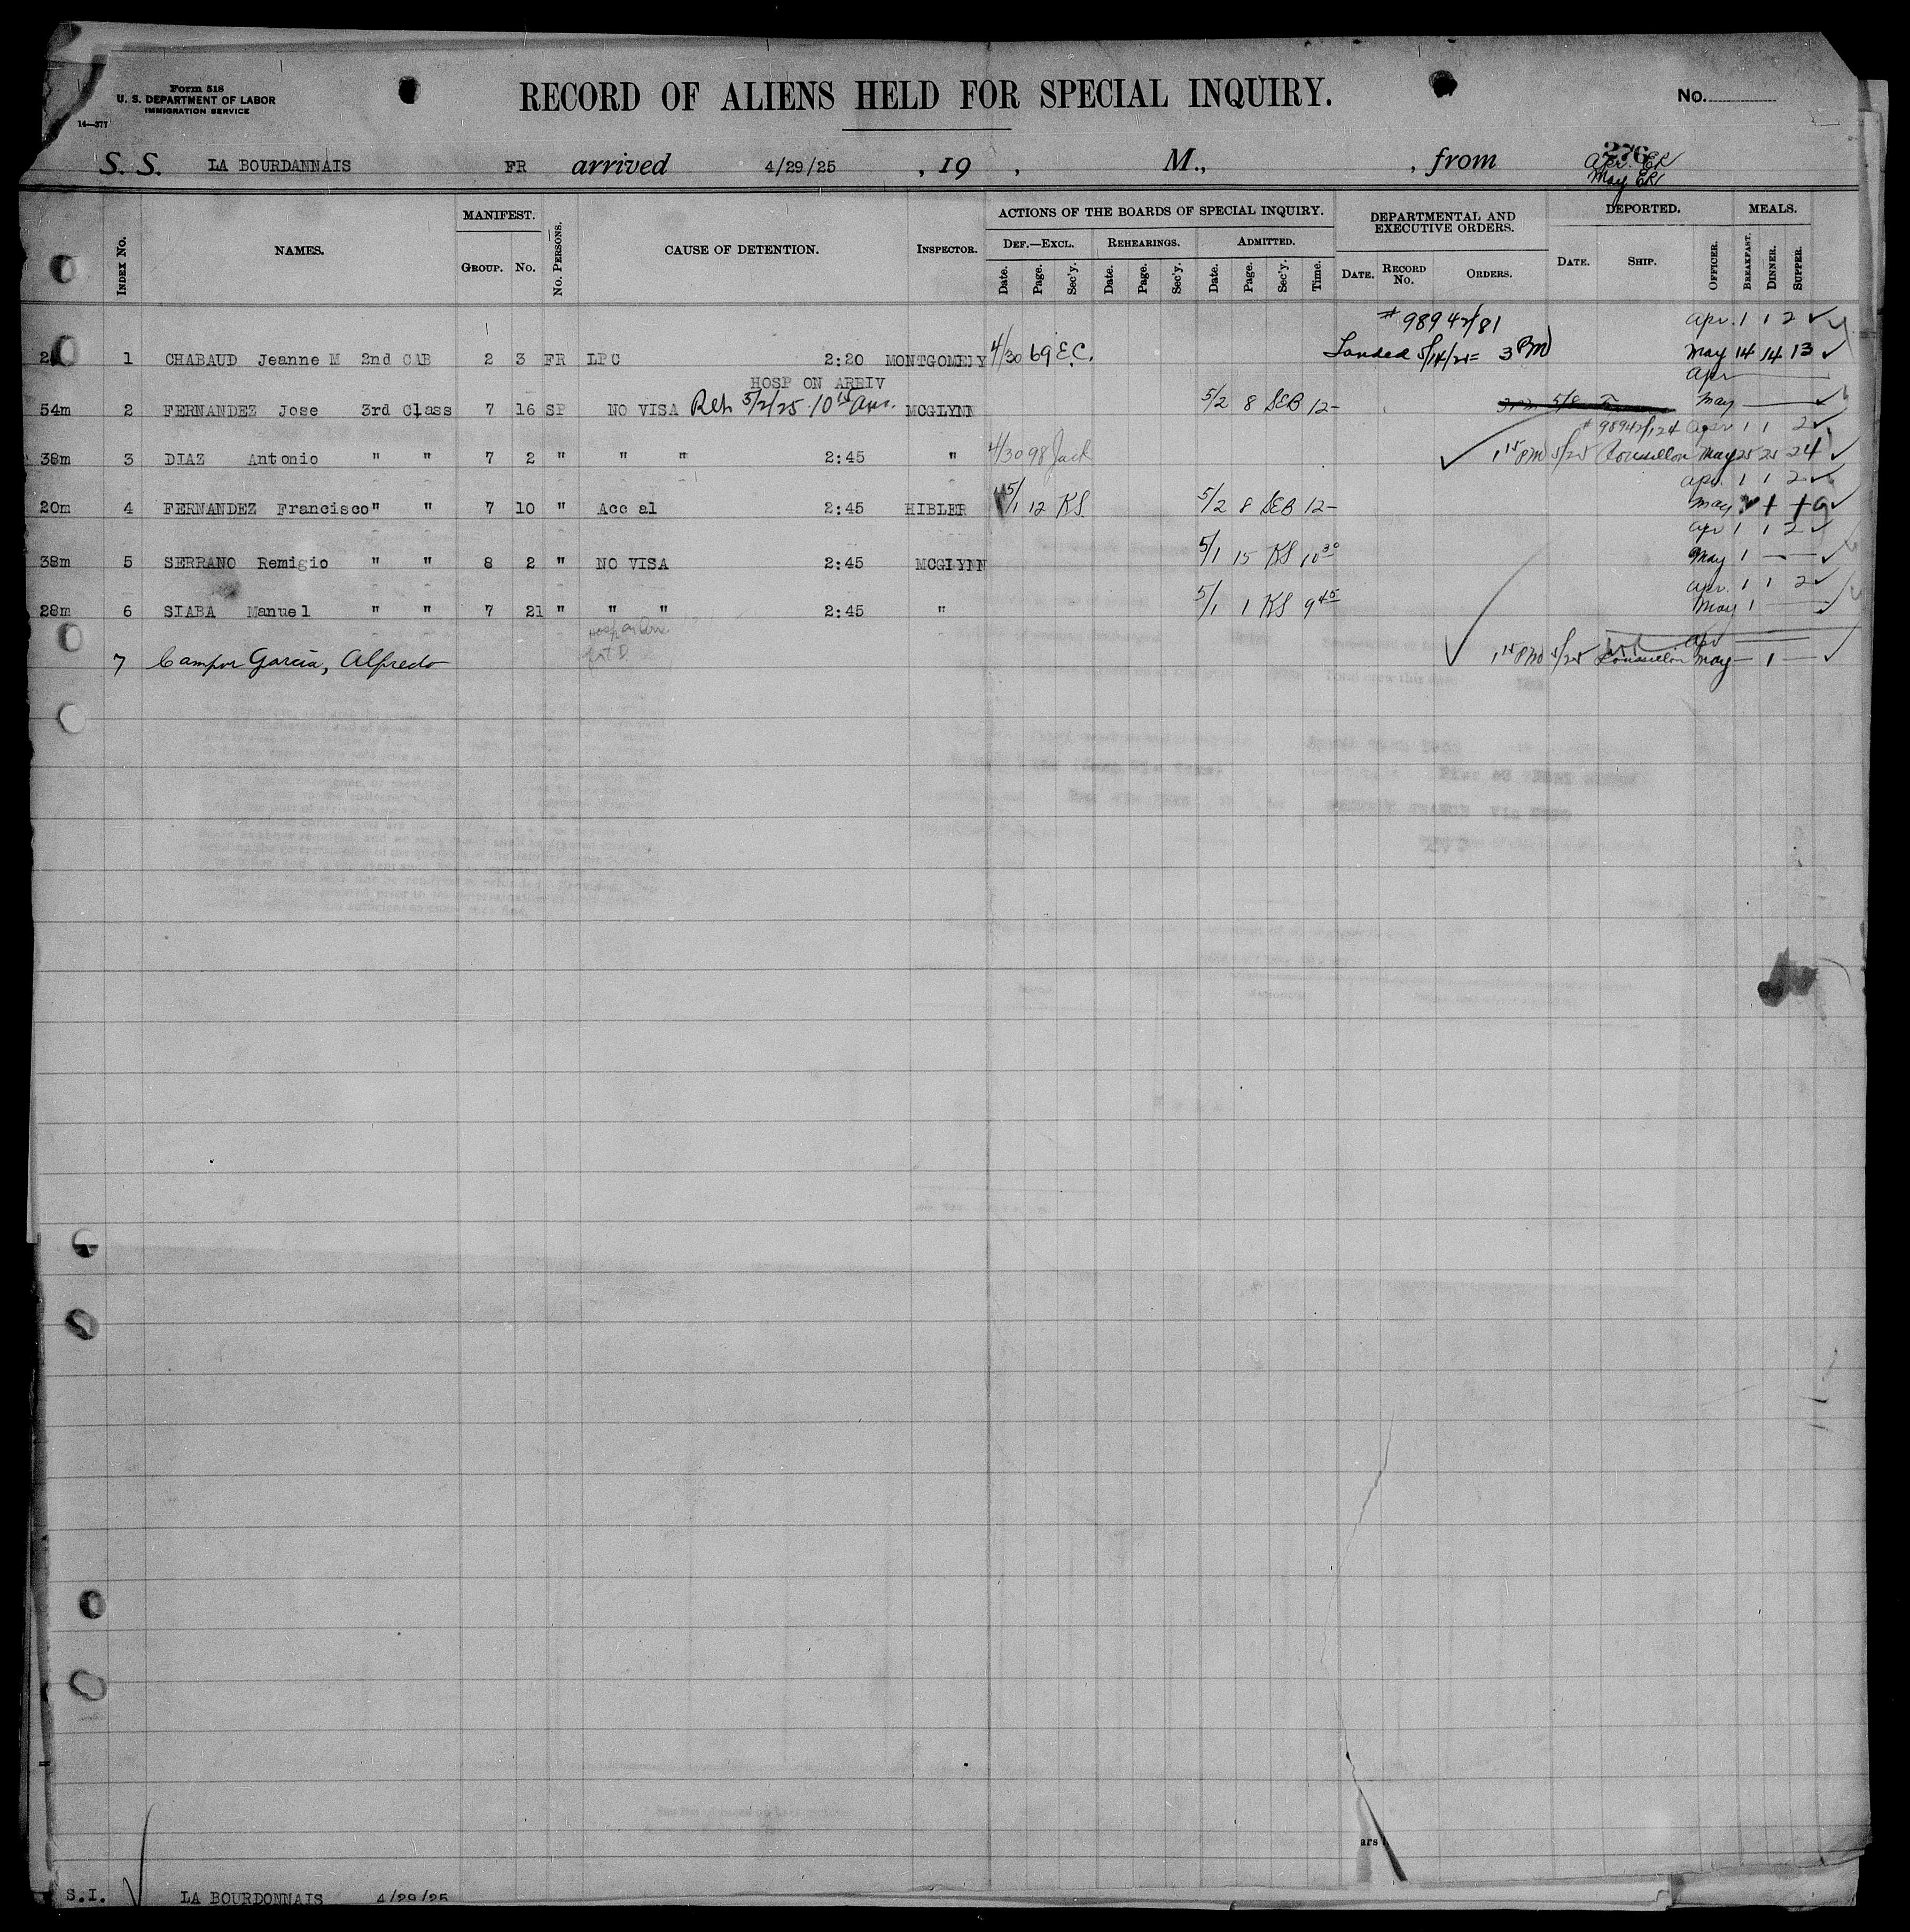 Form 518
U. S. DEPARTMENT OF LABOR
IMMIGRATION SERVICE
14—377
RECORD OF ALIENS HELD FOR SPECIAL INQUIRY.
No.
276
S. S. LA BOURDANNAIS FR arrived 4/29/25 , 19 , M., , from Apr. ER
May ER
INDEX No. NAMES. MANIFEST. GROUP. No. No. PERSONS. CAUSE OF DETENTION. INSPECTOR. ACTIONS OF THE BOARDS OF SPECIAL INQUIRY. DEF.—EXCL. Date. Page. Sec'y. REHEARINGS. Date. Page. Sec'y. ADMITTED. Date. Page. Sec'y. Time. DEPARTMENTAL AND EXECUTIVE ORDERS. DATE. RECORD No. ORDERS. DEPORTED. DATE. SHIP. OFFICER. MEALS. BREAKFAST. DINNER. SUPPER.
# 98942/81 Apr. 1 1 2
1 CHABAUD Jeanne M 2nd CAB 2 3 FR LPC 2:20 MONTGOMERY 4/30 69 E.C. Landed 5/14/25 3 PM May 14 14 13
HOSP ON ARRIV Apr
54m 2 FERNANDEZ Jose 3rd Class 7 16 SP NO VISA 5/2/25 10 MCGLYNN 5/2 8 SEB 12- May
# 98942/124 Apr 1 1 2
38m 3 DIAZ Antonio " " 7 2 " " " 2:45 " 4/30 98 Jack 1 15 PM 5/25 Roussillon May 25 25 24
Apr. 1 1 2
20m 4 FERNANDEZ Francisco " " 7 10 " Acc al 2:45 HIBLER 5/1 12 KS. 5/2 8 SEB 12- May
Apr 1 1 2
38m 5 SERRANO Remigio " " 8 2 " NO VISA 2:45 MCGLYNN 5/1 15 KS 10 30 May 1
Apr. 1 1 2
28m 6 SIABA Manuel " " 7 21 " " " 2:45 " 5/1 1 KS 9 45 May 1
Hosp on Arr. Apr
7 Campor Garcia, Alfredo 1 15 PM 5/25 Roussillon May 1
ars
S.I. LA BOURDONNAIS 4/29/25